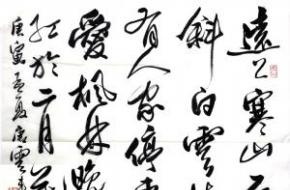 遠上寒山石
斜白雲生
有人家停車
愛楓林晚
紅於二月花
庚寅孟夏凌雲